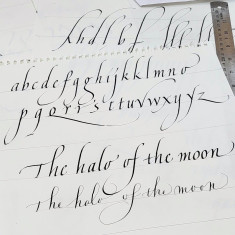 abcdefghijkklmno
pqorrsttuvwxyyz
The halo of the moon
The halo of the moon